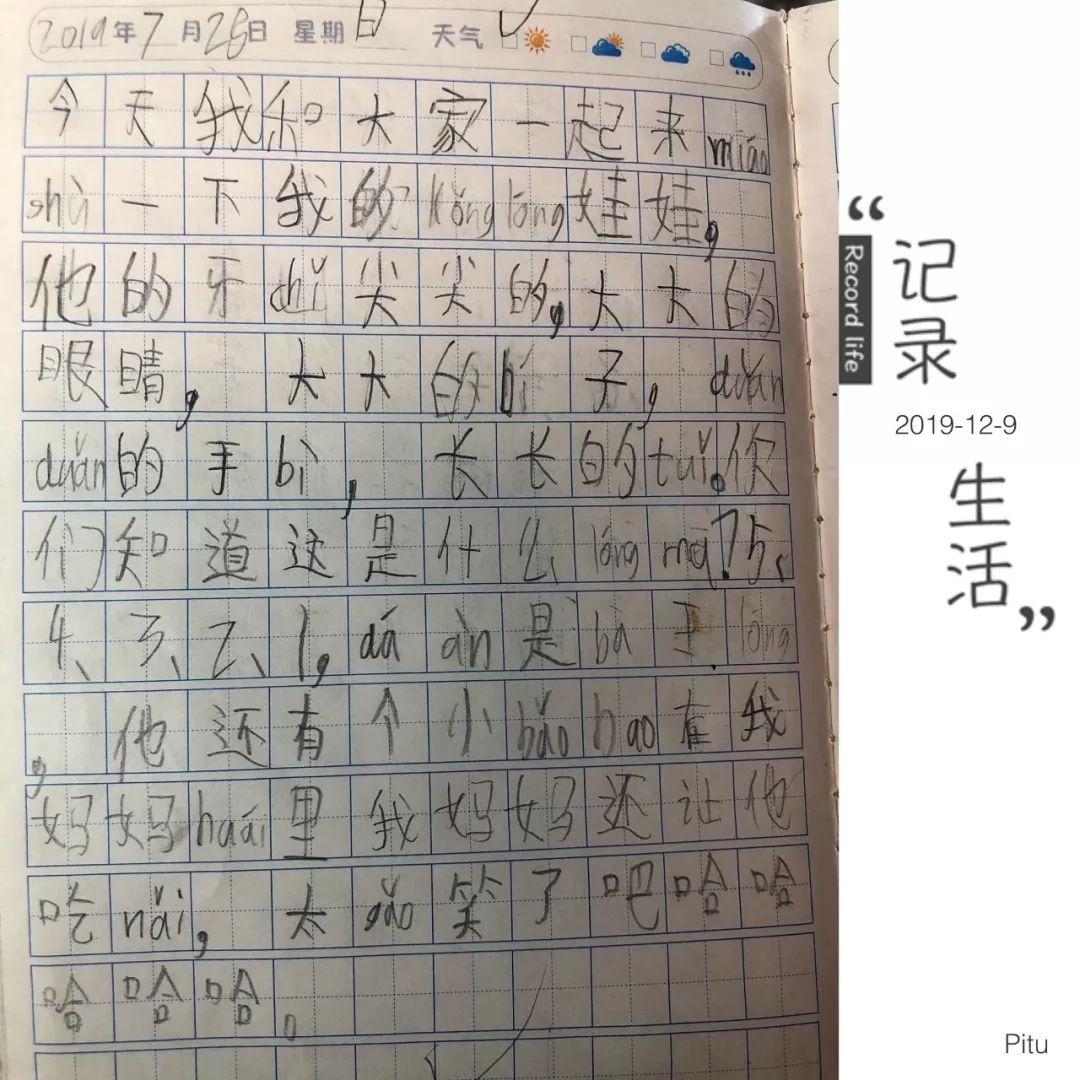 2019年7月28日 星期日 天气
今天我和大家一起来miáo
shù一下我的kǒng lóng娃娃,
他的牙chǐ尖尖的,大大的
眼睛,大大的bí子,duǎn
duǎn的手bì,长长的tuǐ。你
们知道这是什么lóng mā?5、
4、3、2、1,dá àn是bà王lóng
,他还有个小bǎo bao在我
妈妈huái里我妈妈还让他
吃nǎi,太gǎo笑了吧哈哈
哈哈哈。
“记录
Record life
2019-12-9
生活”
Pitu